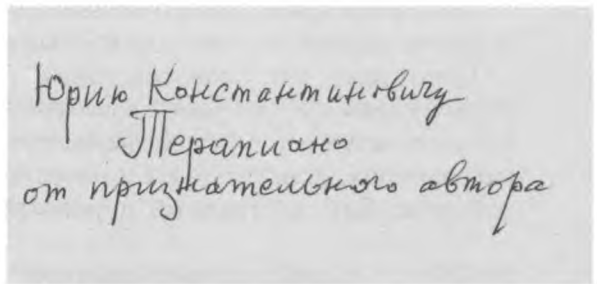 Юрию Константиновичу
Терапиано
от признательного автора